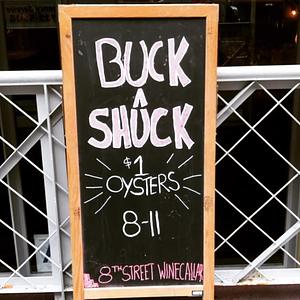 BUCK
A
SHUCK
$1
OYSTERS
8-11
8TH STREET WINECALLAR